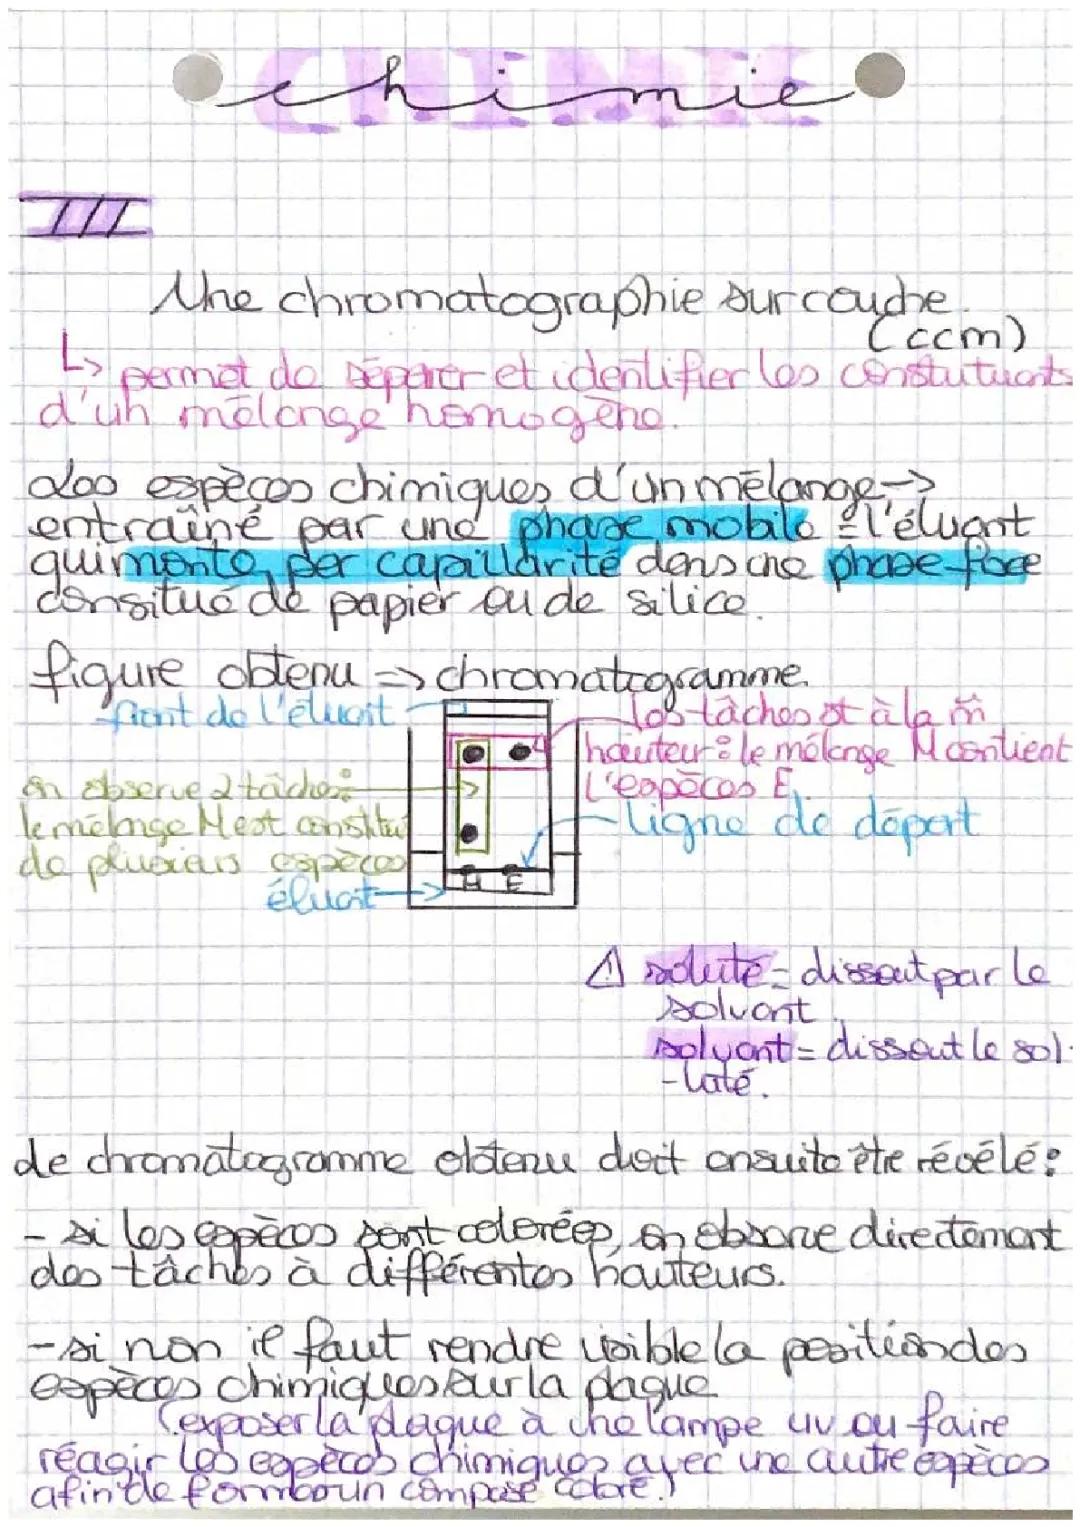 CHIMIE
chimie
III
Une chromatographie sur couche
(ccm)
↳ permet de séparer et identifier les constutuants
d'un mélange homogène.
Les espèces chimiques d'un mélange →
entraîné par une phase mobile = l'éluant
qui monte per capillarité dans une phase fixe
consitué de papier ou de silice.
figure obtenu => chromatogramme.
front de l'éluant
les tâches st à la m̂
hauteur : le mélange M contient
l'espèces E,
on observe 2 tâches :
le mélange M est constitué
de plusieurs espèces
ligne de départ
éluant
M E
⚠ soluté = dissout par le
solvant.
solvant = dissout le sol-
-luté.
Le chromatogramme obtenu doit ensuite être révélé :
- si les espèces sont colorées, on observe directement
des tâches à différentes hauteurs.
- si non il faut rendre visible la position des
espèces chimiques sur la plaque
(exposer la plaque à une lampe uv ou faire
réagir les espèces chimiques avec une autre espèces
afin de former un composé coloré.)